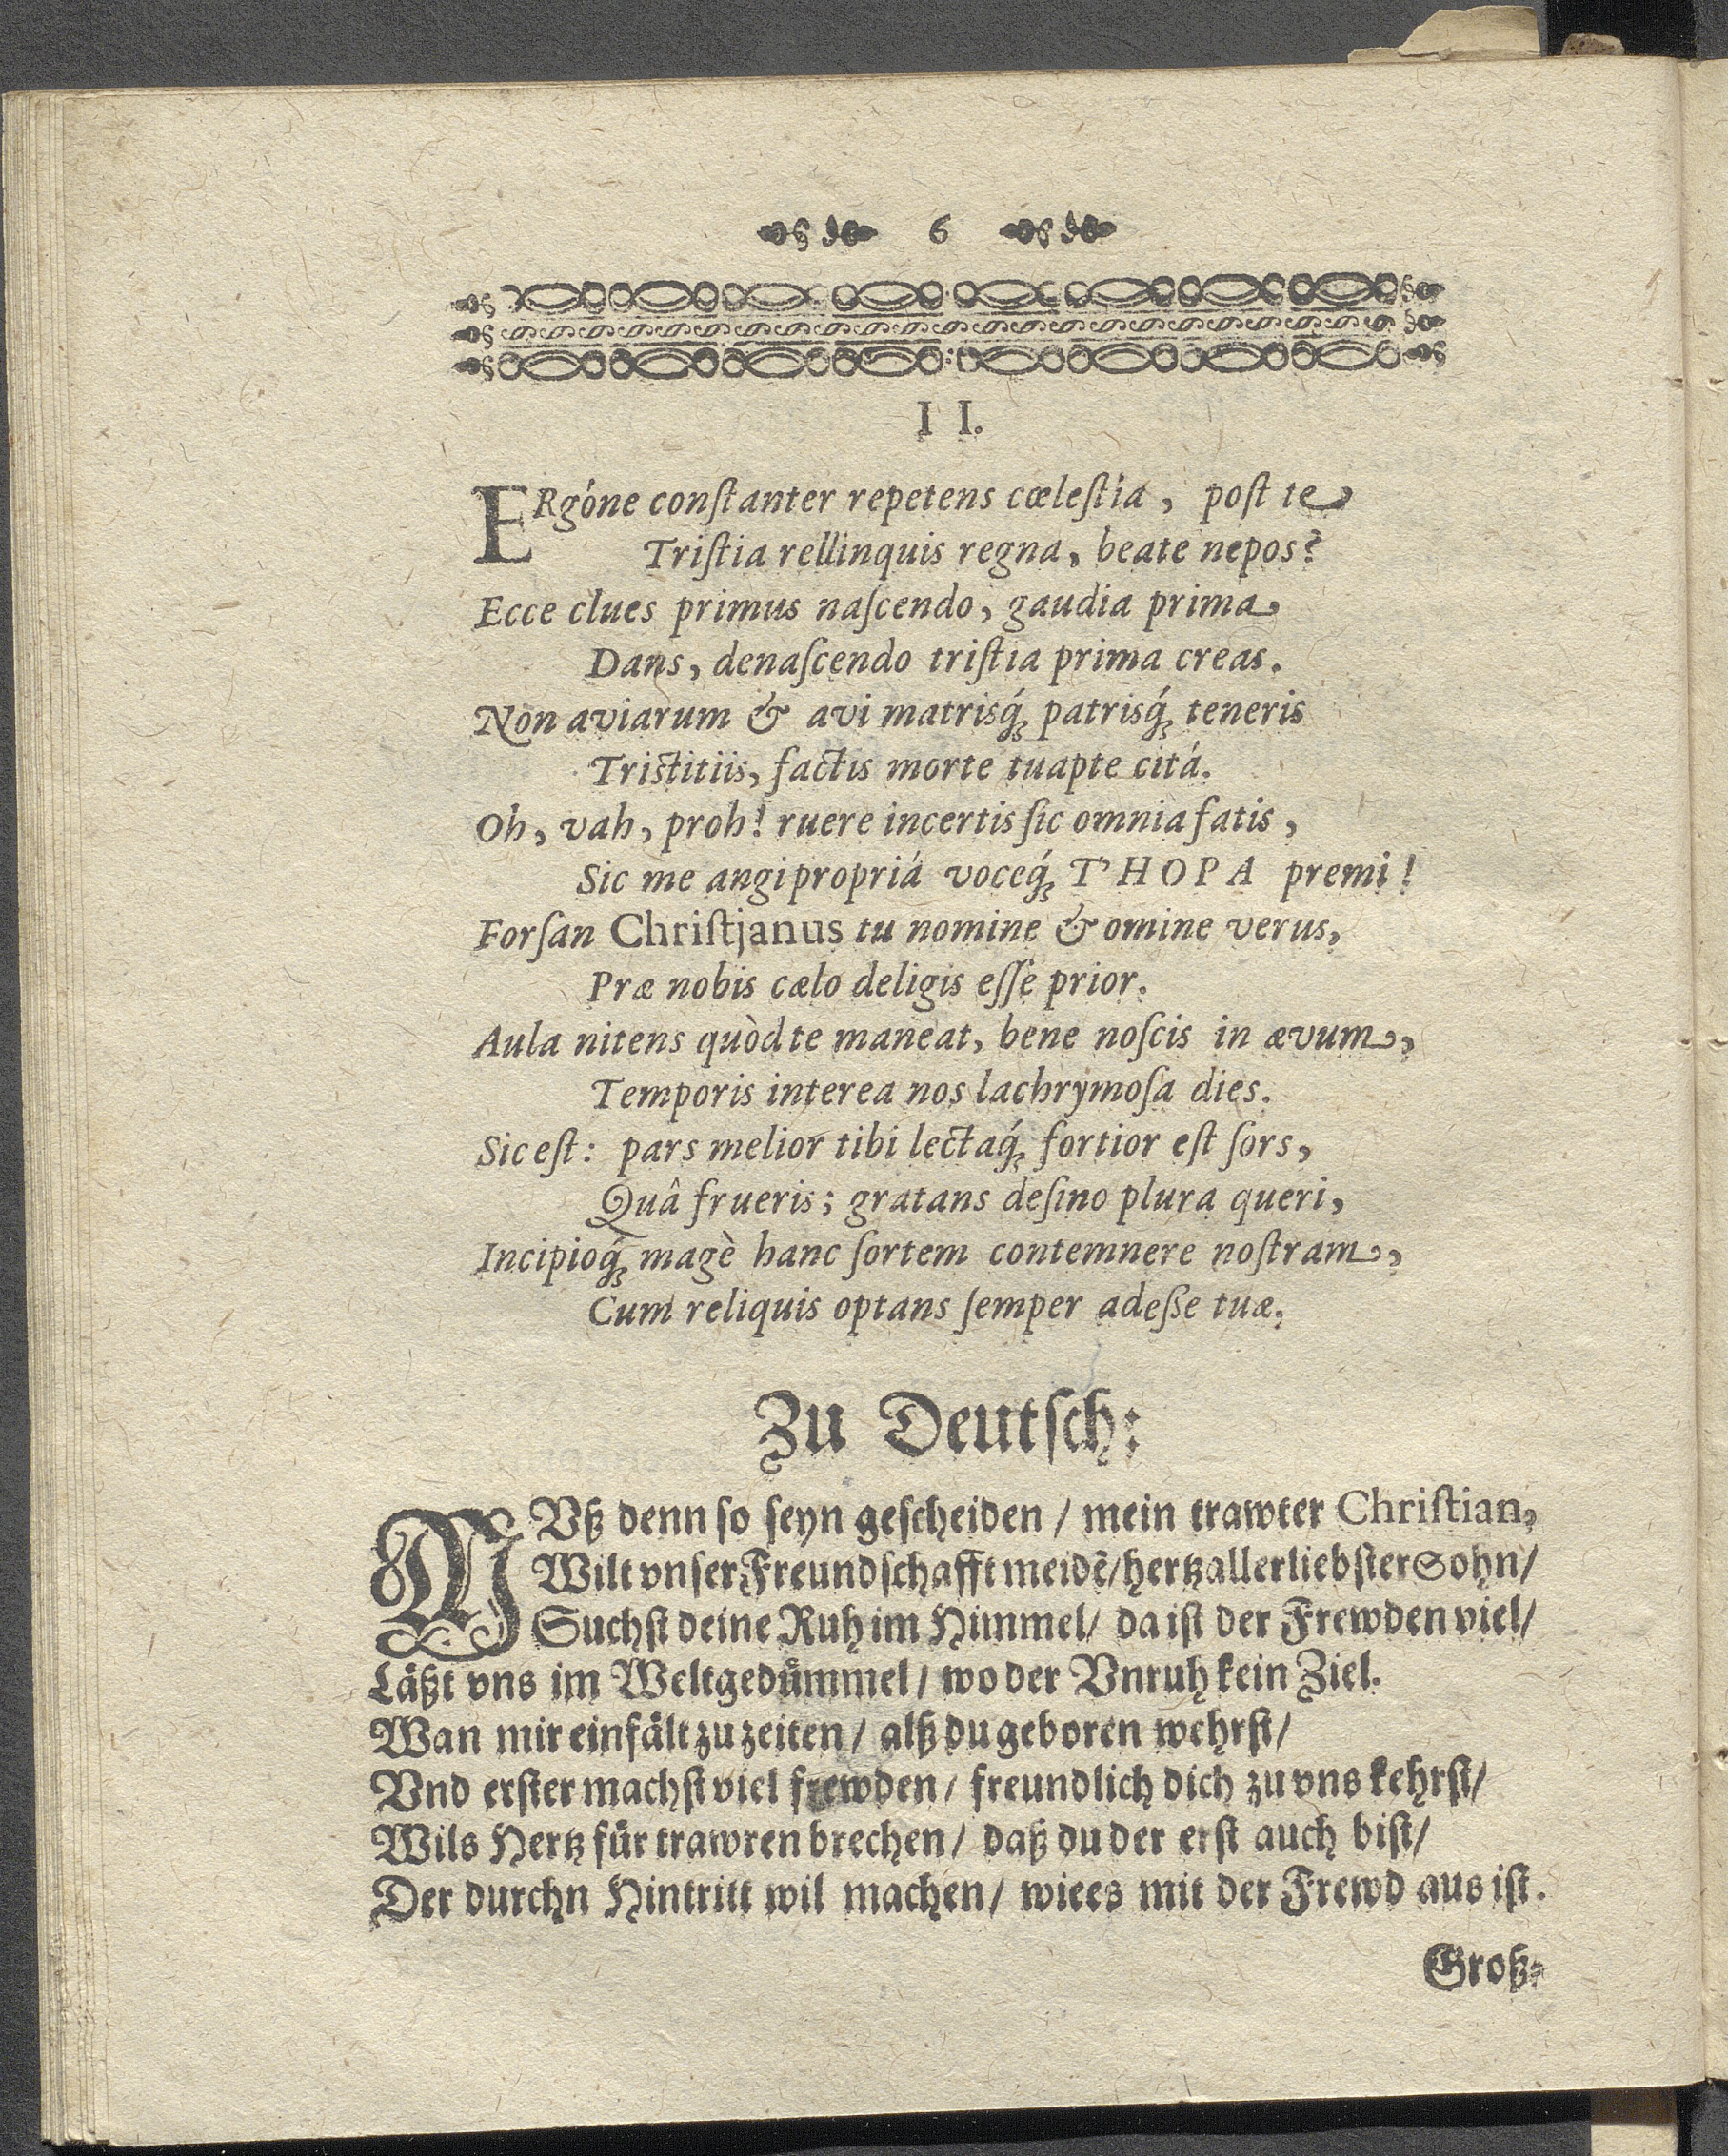 6
II.
ERgóne conſtanter repetens cœleſtia, poſt te
Triſtia rellinquis regna, beate nepos?
Ecce clues primus naſcendo, gaudia prima,
Dans, denaſcendo triſtia prima creas.
Non aviarum & avi matrisq́; patrisq́; teneris
Tristitiis, factis morte tuapte citá.
Oh, vah, proh! ruere incertis ſic omnia fatis,
Sic me angi propriá voceq́; T'HOPA premi!
Forſan Chriſtjanus tu nomine & omine verus,
Præ nobis cælo deligis eſſe prior.
Aula nitens quòd te maneat, bene noſcis in ævum,
Temporis interea nos lachrymoſa dies.
Sic eſt: pars melior tibi lectaq́; fortior eſt ſors,
Quâ frueris; gratans deſino plura queri,
Incipioq́; magè hanc ſortem contemnere noſtram,
Cum reliquis optans ſemper adeſse tuæ.
Zu Deutſch:
MVß denn ſo ſeyn geſcheiden / mein trawter Chriſtian,
Wilt vnſer Freundſchafft meidẽ / hertzallerliebſter Sohn /
Suchſt deine Ruh im Himmel / da iſt der Frewden viel /
Läßt vns im Weltgedümmel / wo der Vnruh kein Ziel.
Wan mir einfält zuzeiten / alß du geboren wehrſt /
Vnd erſter machſt viel frewden / freundlich dich zu vns kehrſt /
Wils Hertz für trawren brechen / daß du der erſt auch biſt /
Der durchn Hintritt wil machen / wie es mit der Frewd aus iſt.
Groß-